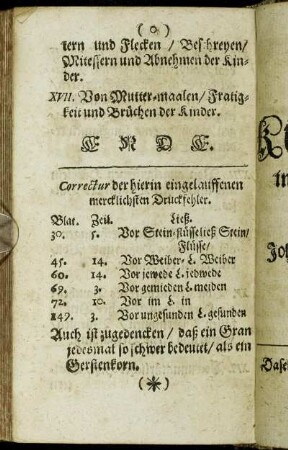 ( o )
tern und Flecken / Beschreyen /
Mitessern und Abnehmen der Kin-
der.
XVII. Von Mutter-maalen / Fratig-
keit und Brüchen der Kinder.
E N D E.
Correctur der hierin eingelauffenen
mercklichsten Druckfehler.
Blat. Zeil. Ließ.
30. 5. Vor Stein-flüsseließ Stein/
Flüsse/
45. 14. Vor Weiber- L. Weiber
60. 14. Vor jewede L. jedwede
69. 3. Vor gemieden L. meiden
72. 10. Vor im L. in
149. 3. Vor ungesunden L. gesunden
Auch ist zugedencken / daß ein Gran
jedesmal so schwer bedeutet / als ein
Gerstenkorn.
(*)